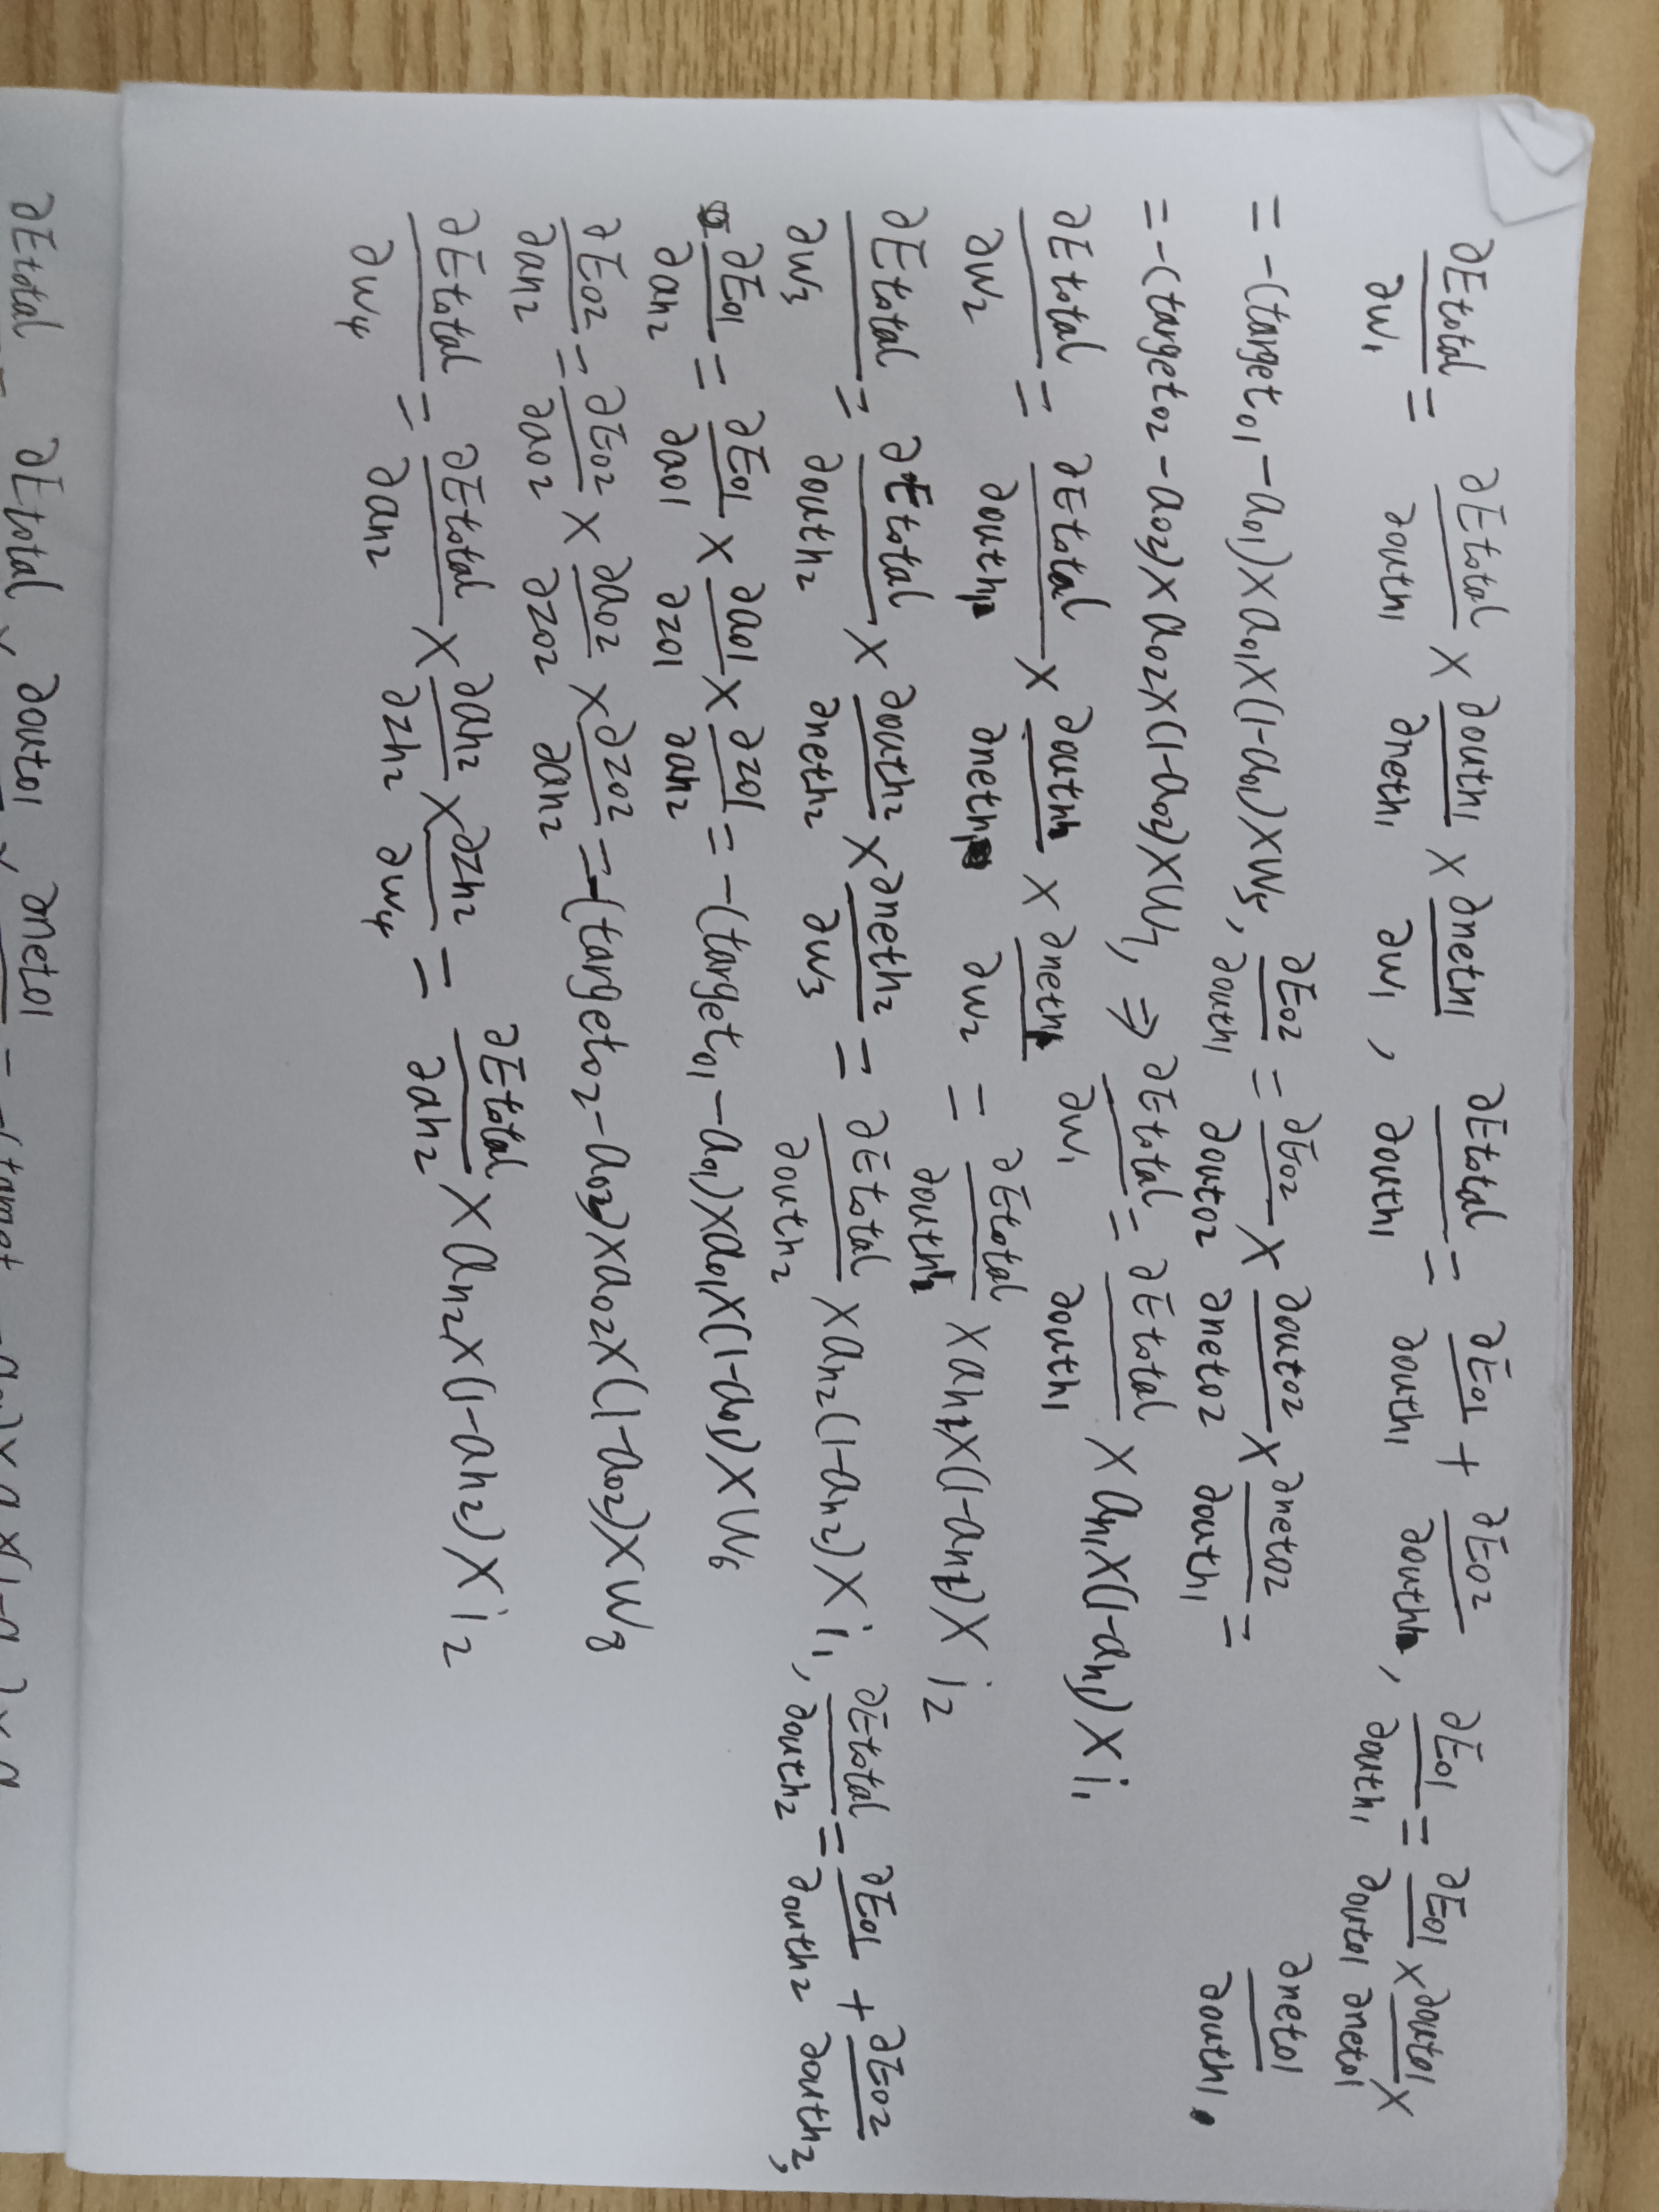 ∂Etotal/∂w₁ = ∂Etotal/∂outh₁ × ∂outh₁/∂neth₁ × ∂neth₁/∂w₁ , ∂Etotal/∂outh₁ = ∂E₀₁/∂outh₁ + ∂E₀₂/∂outh₁ , ∂E₀₁/∂outh₁ = ∂E₀₁/∂out₀₁ × ∂out₀₁/∂net₀₁ ×
∂net₀₁/∂outh₁ .
= -(target₀₁ - a₀₁) × a₀₁ × (1-a₀₁) × w₅ , ∂E₀₂/∂outh₁ = ∂E₀₂/∂out₀₂ × ∂out₀₂/∂net₀₂ × ∂net₀₂/∂outh₁ =
= -(target₀₂ - a₀₂) × a₀₂ × (1-a₀₂) × w₇ , ⇒ ∂Etotal/∂w₁ = ∂Etotal/∂outh₁ × ah₁ × (1-ah₁) × i₁
∂Etotal/∂w₂ = ∂Etotal/∂outh₁ × ∂outh₁/∂neth₁ × ∂neth₁/∂w₂ = ∂Etotal/∂outh₁ × ah₁ × (1-ah₁) × i₂
∂Etotal/∂w₃ = ∂Etotal/∂outh₂ × ∂outh₂/∂neth₂ × ∂neth₂/∂w₃ = ∂Etotal/∂outh₂ × ah₂ (1-ah₂) × i₁ , ∂Etotal/∂outh₂ = ∂E₀₁/∂outh₂ + ∂E₀₂/∂outh₂ ,
∂E₀₁/∂ah₂ = ∂E₀₁/∂a₀₁ × ∂a₀₁/∂z₀₁ × ∂z₀₁/∂ah₂ = -(target₀₁ - a₀₁) × a₀₁ × (1-a₀₁) × w₆
∂E₀₂/∂ah₂ = ∂E₀₂/∂a₀₂ × ∂a₀₂/∂z₀₂ × ∂z₀₂/∂ah₂ = -(target₀₂ - a₀₂) × a₀₂ × (1-a₀₂) × w₈
∂Etotal/∂w₄ = ∂Etotal/∂ah₂ × ∂ah₂/∂zh₂ × ∂zh₂/∂w₄ = ∂Etotal/∂ah₂ × ah₂ × (1-ah₂) × i₂
∂Etotal ∂Etotal ∂out₀₁ ∂net₀₁